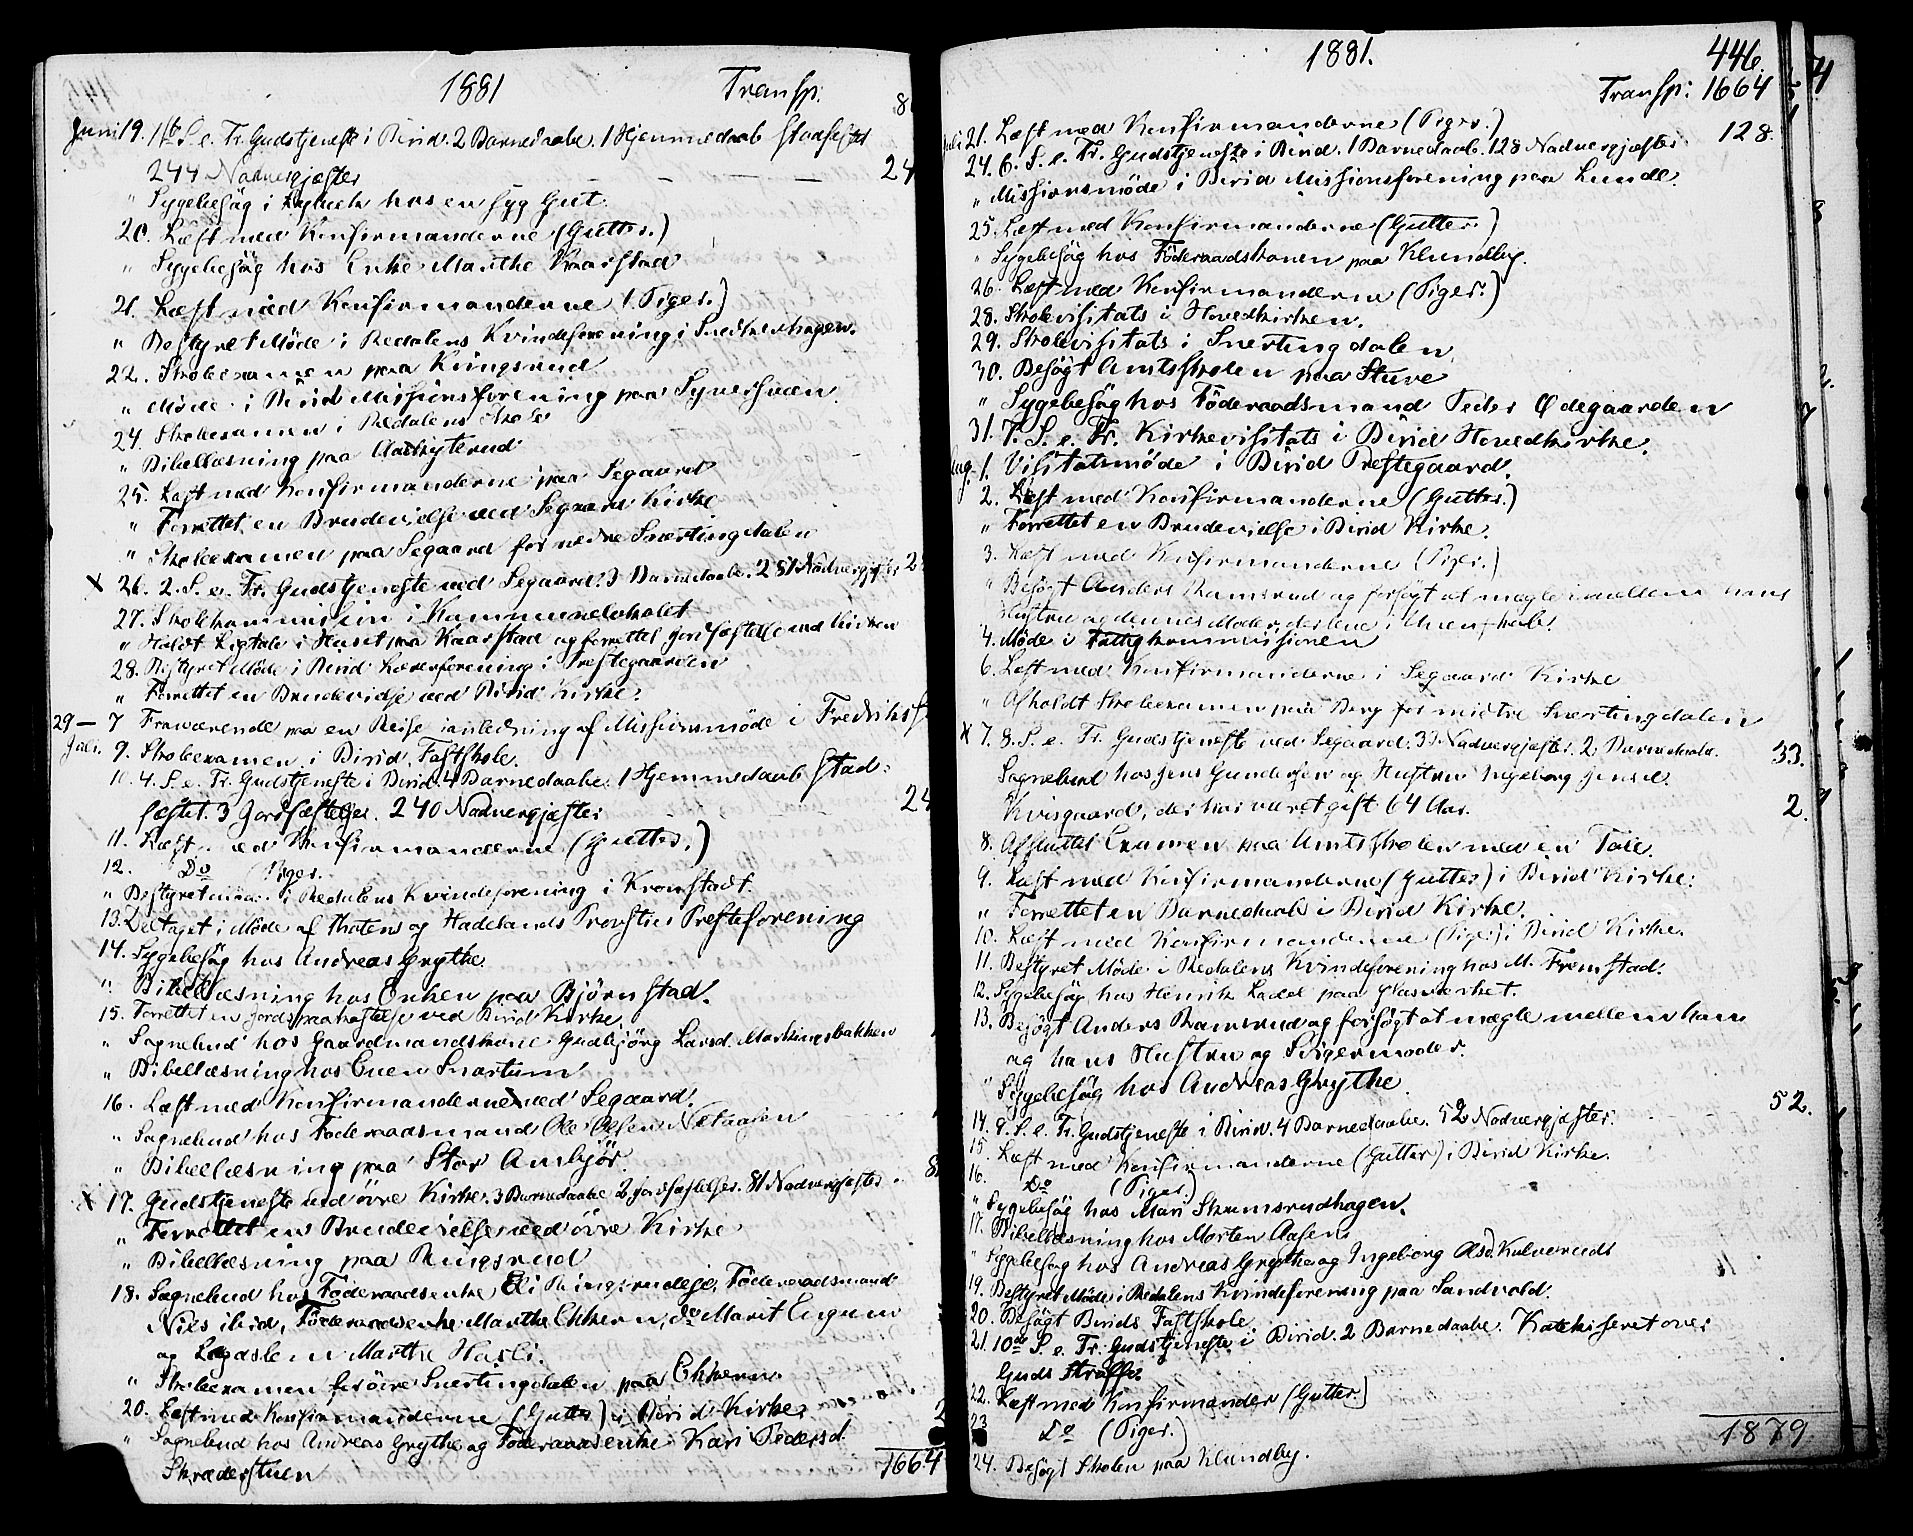 1881 Transp. 8
Juni 19. 1ste S. e. Tr. Gudstjeneste i Birid. 2 Barnedaabe. 1 Hjemmedaab stadfæstet
244 Nadvergjæster 24
" Sygebesøg i hos en syg Gut
20. Læst med Konfirmanderne (Gutter.)
" Sygebesøg hos Enke Marthe Kaarstad
21. Læst med Konfirmanderne (Piger.)
" Bestyret Møde i Redalens Kvindeforening i Snedkerhagen.
22. Skoleexamen paa Ringsrud
" Møde i Birid Missionsforening paa
24. Skoleexamen i Redalens Skole
" Bibellæsning paa
25. Læst med Konfirmanderne paa Segaard
" Forrettet en Brudevielse ved Segaard Kirke
" Skoleexamen paa Segaard for nedre Snertingdalen
X 26. 2. S. e. Tr. Gudstjeneste ved Segaard. 3 Barnedaabe. 281 Nadvergjæster 2
27. Skolekommission i Kommunelokalet
" Holdt Ligtale i Huset paa Kaarstad og forrettet Jordfæstelse ved Kirken
28. Bestyret Møde i Birid Lærerforening i Prestegaarden
" Forrettet en Brudevielse ved Birid Kirke.
29 — 7 Fraværende paa en Reise i anledning af Missionsmøde i
Juli. 9. Skoleexamen i Birid Fastskole.
10. 4. S. e. Tr. Gudstjeneste i Birid. 4 Barnedaabe. 1 Hjemmedaab stad-
fæstet. 3 Jordfæstelser. 240 Nadvergjæster 24
11. Læst med Konfirmanderne (Gutter.)
12. Do (Piger.
" Bestyret møde i Redalens Kvindeforening i Kronstadt.
13. Deltaget i Møde af Thotens og Hadelands Provsties Presteforening
14. Sygebesøg hos Andreas Grythe
" Bibellæsning hos Enken paa Bjørnstad.
15. Forrettet en Jordspaakastelse ved Birid Kirke
" Sognebud hos Gaardmandskone Gudbjørg Larsd. Marthinsbakken
" Bibellæsning hos Even Snartum
16. Læst med Konfirmanderne ved Segaard.
" Sognebud hos Føderaadsmand Ole Olsen
" Bibellæsning paa Stor
X 17. Gudstjeneste ved øvre Kirke. 3 Barnedaabe 2 Jordfæstelser. 81 Nadvergjæster 8
" Forrettet en Brudevielse ved øvre Kirke
" Bibellæsning paa Ringsrud
18. Sognebud hos Føderaadsenke Eli Ringsrudeje, Føderaadsmand
Nils ibid, Føderaadsenke Marthe Ekkern, do Marit Engum
og Lægdslem Marthe Hasli.
" Skoleexamen for øvre Snertingdalen paa Ekkern
20. Læst med Konfirmanderne (Gutter) i Birid Kirke. 2
" Sognebud hos Andreas Grythe og Føderaadsenke Kari Pedersd.
Skræderstuen 1664
1881. 446.
Transp: 1664
Juli 21. Læst med Konfirmanderne (Piger.)
24. 6. S. e. Tr. Gudstjeneste i Birid. 1 Barnedaab. 128 Nadvergjæster 128.
" Missionsmøde i Birid Missionsforening paa Lunde.
25. Læst med Konfirmanderne (Gutter.)
" Sygebesøg hos Føderaadskonen paa Klundby.
26. Læst med Konfirmanderne (Piger.)
28. Skolevisitats i Hovedkirken.
29. Skolevisitats i Snertingdalen
30. Besøgt Amtsskolen paa Stuve
" Sygebesøg hos Føderaadsmand Peder Ødegaarden
31. 7. S. e. Tr. Kirkevisitats i Birid Hovedkirke.
Aug. 1. Visitatsmøde i Birid Prestegaard.
2. Læst med Konfirmanderne (Gutter.)
" Forrettet en Brudevielse i Birid Kirke.
3. Læst med Konfirmanderne (Piger.)
" Besøgt Anders Ramsrud og forsøgt at mægle imellem hans
Hustru og dennes Moder, der leve i Uvenskab.
4. Møde i Fattigkommissionen
6. Læst med Konfirmanderne i Segaard Kirke
" Afholdt Skoleexamen paa Berg for midtre Snertingdalen
X 7. 8. S. e. Tr. Gudstjeneste ved Segaard. 33 Nadvergjæster. 2 Barnedaabe. 33.
Sognebud hos Jens Gundersen og Hustru Ingeborg Jensd.
Kvisgaard, der har været gift 64 Aar. 2.
8. Afsluttet Examen paa Amtsskolen med en Tale.
9. Læst med Konfirmanderne (Gutter) i Birid Kirke.
" Forrettet en Barnedaab i Birid Kirke.
10. Læst med Konfirmanderne (Piger) i Birid Kirke.
11. Bestyret Møde i Redalens Kvindeforening hos M. Fremstad.
12. Sygebesøg hos Henrik Ladel paa Glasværket.
13. Besøgt Anders Ramsrud og forsøgt at mægle mellem ham
og hans Hustru og Svigermoder.
" Sygebesøg hos Andreas Grythe
14. 9. S. e. Tr. Gudstjeneste i Birid. 4 Barnedaabe. 52 Nadvergjæster. 52.
15. Læst med Konfirmanderne (Gutter) i Birid Kirke.
16. Do (Piger.)
" Sygebesøg hos Mari Skumsrudhagen.
17. Bibellæsning hos Morten Aasen
" Sygebesøg hos Andreas Grythe og Ingeborg Olsd. Kalverud
19. Bestyret Møde i Redalens Kvindeforening paa Sandvold.
20. Besøgt Birids Fastskole
21. 10de S. e. Tr. Gudstjeneste i Birid. 2 Barnedaabe. Katekiseret over
Guds Straffe.
22. Læst med Konfirmander (Gutter.)
23 Do (Piger.)
24. Besøgt Skolen paa Klundby. 1879